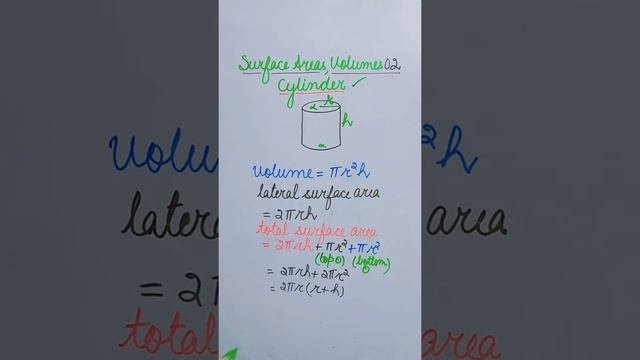 Surface Areas, Volumes 02
Cylinder ✓
r
h
Volume = πr²h
lateral surface area
= 2πrh
total surface area
= 2πrh + πr² + πr²
(top) (bottom)
= 2πrh + 2πr²
= 2πr(r+h)